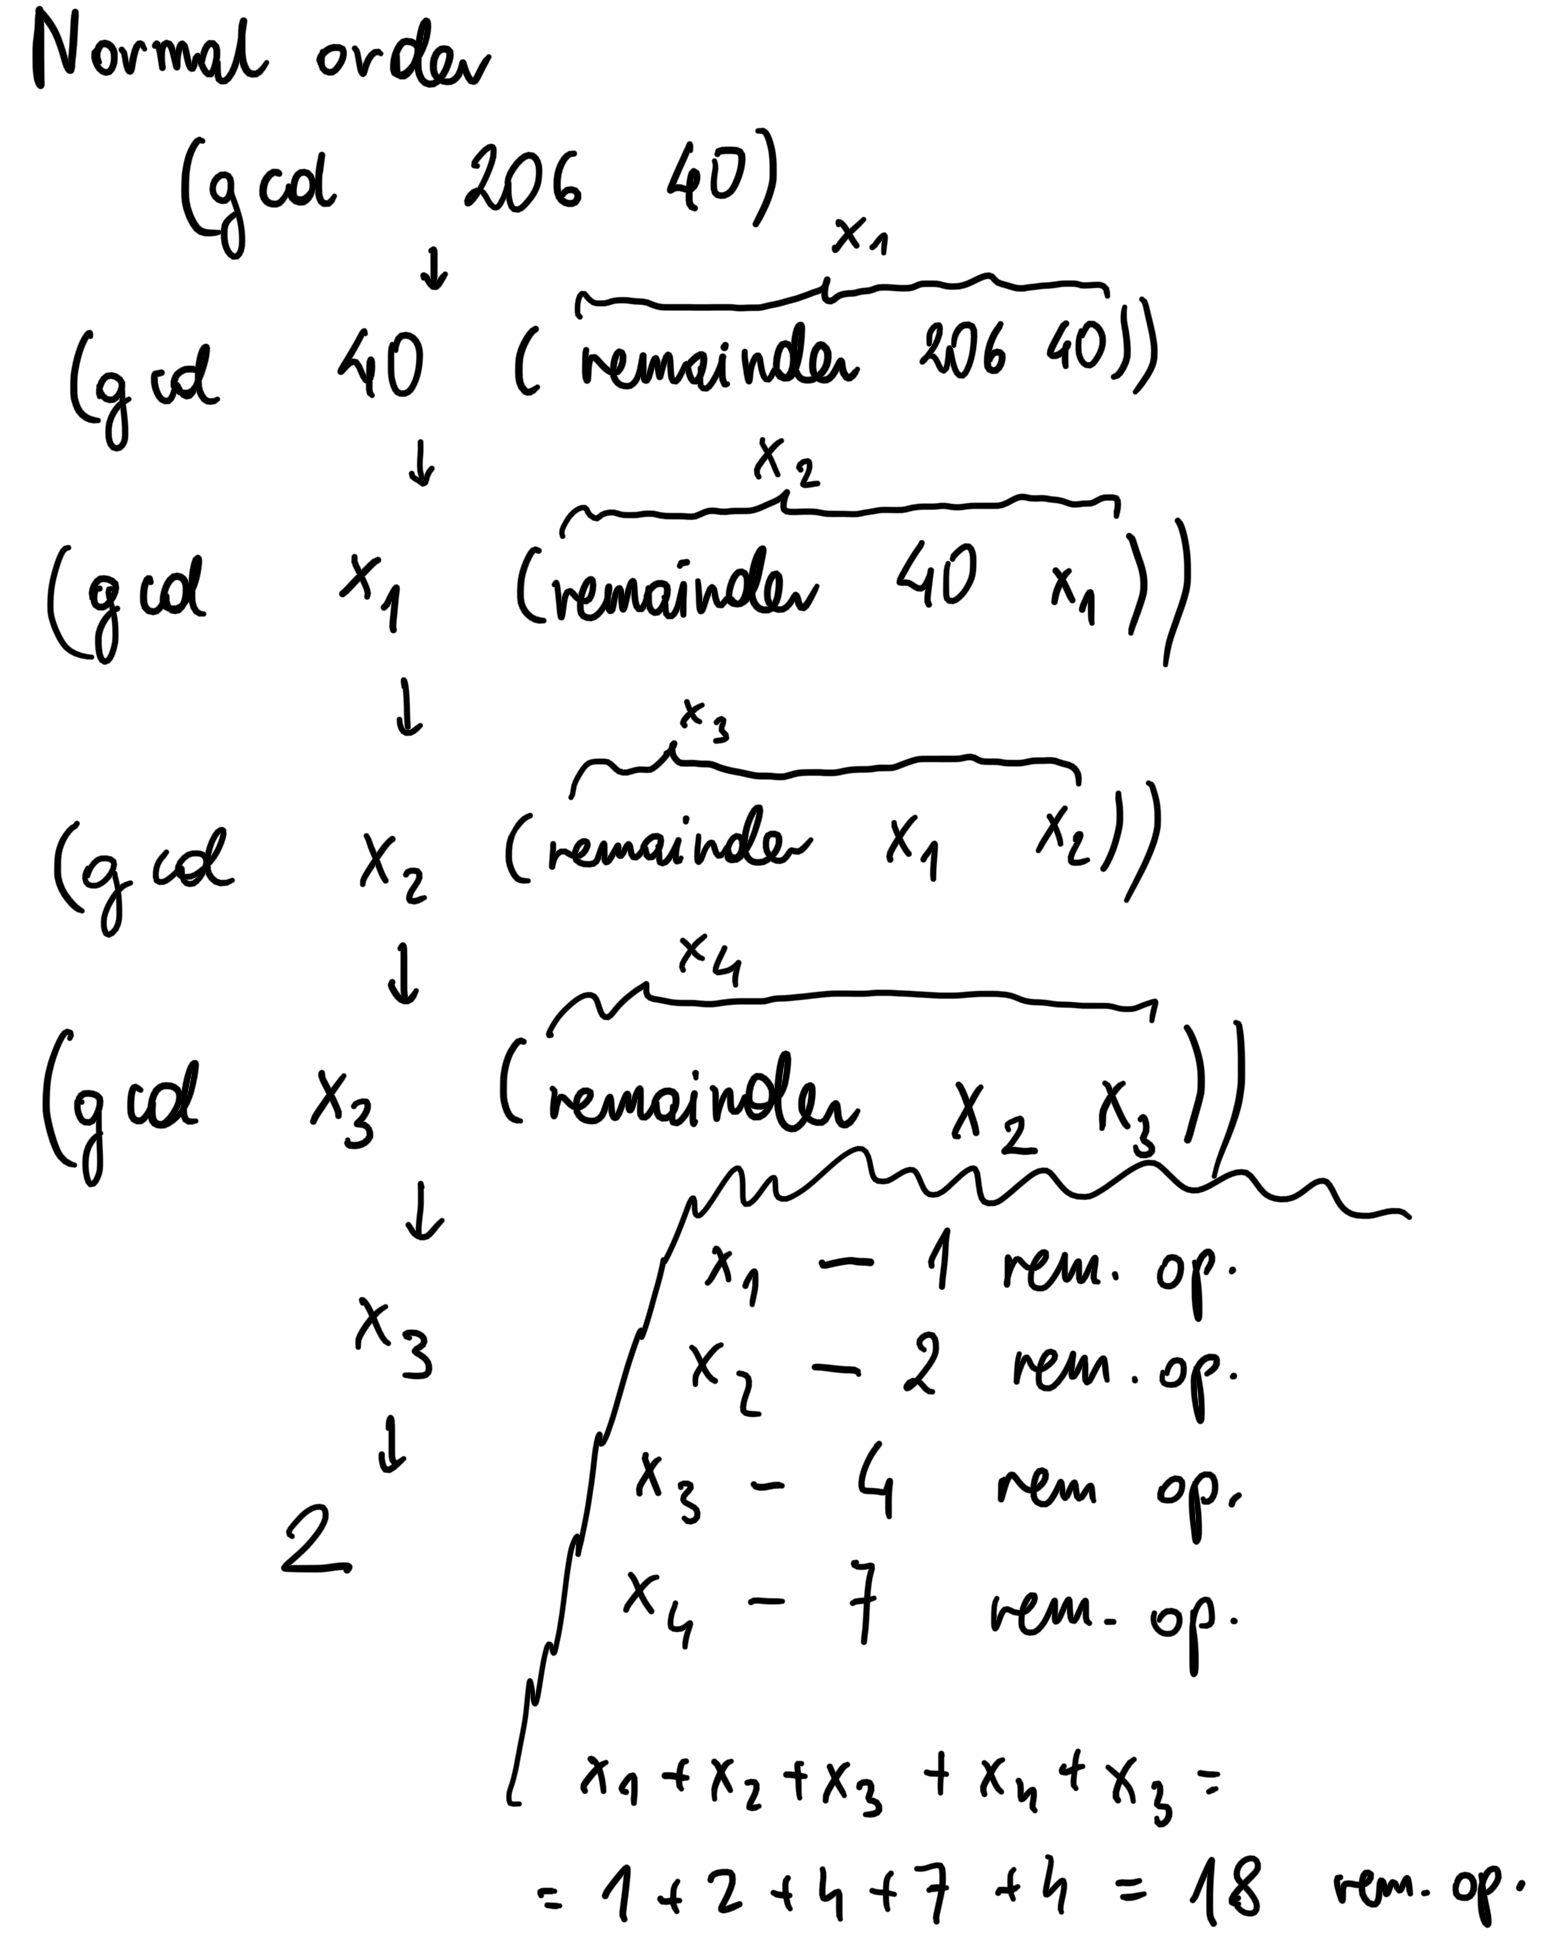 Normal order
(gcd 206 40)
↓
x₁
(gcd 40 (remainder 206 40))
↓
x₂
(gcd x₁ (remainder 40 x₁)))
↓
x₃
(gcd x₂ (remainder x₁ x₂))
↓
x₄
(gcd x₃ (remainder x₂ x₃))
↓
x₃
↓
2
x₁ – 1 rem. op.
x₂ – 2 rem. op.
x₃ – 4 rem op.
x₄ – 7 rem. op.
x₁ + x₂ + x₃ + x₄ + x₃ =
= 1 + 2 + 4 + 7 + 4 = 18 rem. op.